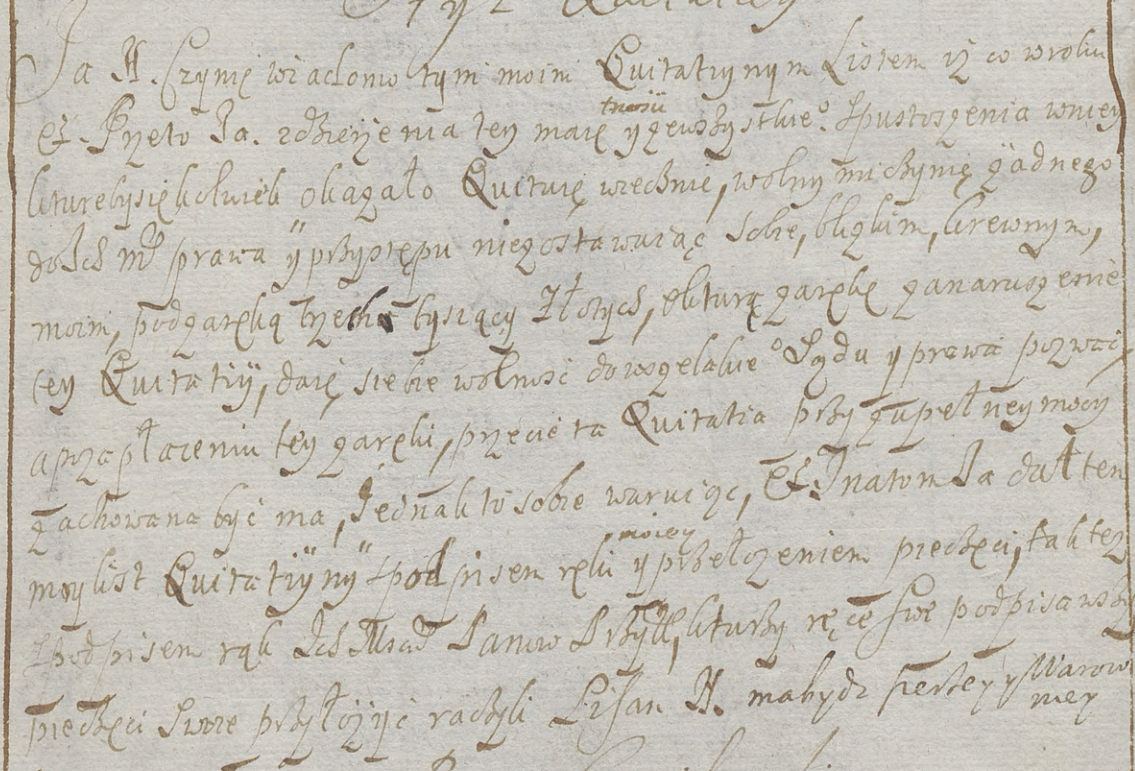 Ja N. Czynię wiadomo tym moim Quitatiynym Listem iż co w roku
&c. Przeto Ja. z dzierżenia tey maię tności y ze wszystkie° Spustoszenia w niey
ktureby się kolwiek okazało Quituię wiecznie, wolny mi czynię żadnego
do Ich Mci prawa y przystępu nie zostawuiąc Sobie, blizkim, krewnym,
moim, pod zaręką trzech tysiący Złotych, o kturą zarękę za naruszenie
tey Quitatiy, daię siebie wolność do wszelakie° Sądu y prawa pozwać,
a po zapłaceniu tey zaręki, przecie ta Quitatia przy zupełney mocy
zachowana być ma, Jednak to sobie waruiąc, &c. I na tom Ja dał ten
moy list Quitatiyny Spodpisem ręki moiey y przełożeniem pieczęci, tak też
Spodpisem rąk Ich Msciow Panow Przyił, kturzy ręce swe podpisawszy
pieczęci swoie przyłożyć raczyli Pisan N.